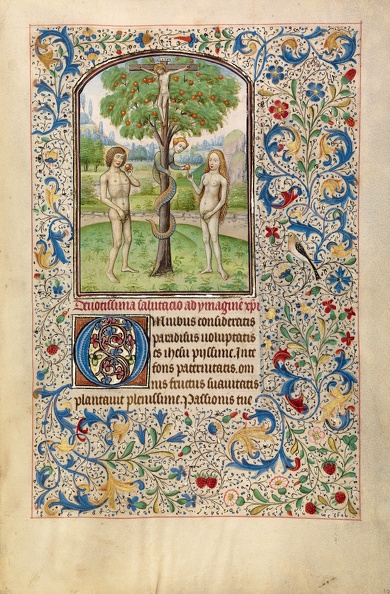 Deuotissima salutacio ad ymaginē xpi
Omnibus consideratis
paradisus voluptatis
es ihesu pijssime. Inte
fons paternitatis, om
nis fructus suauitatis
plantauit plenissime. Passionis tue